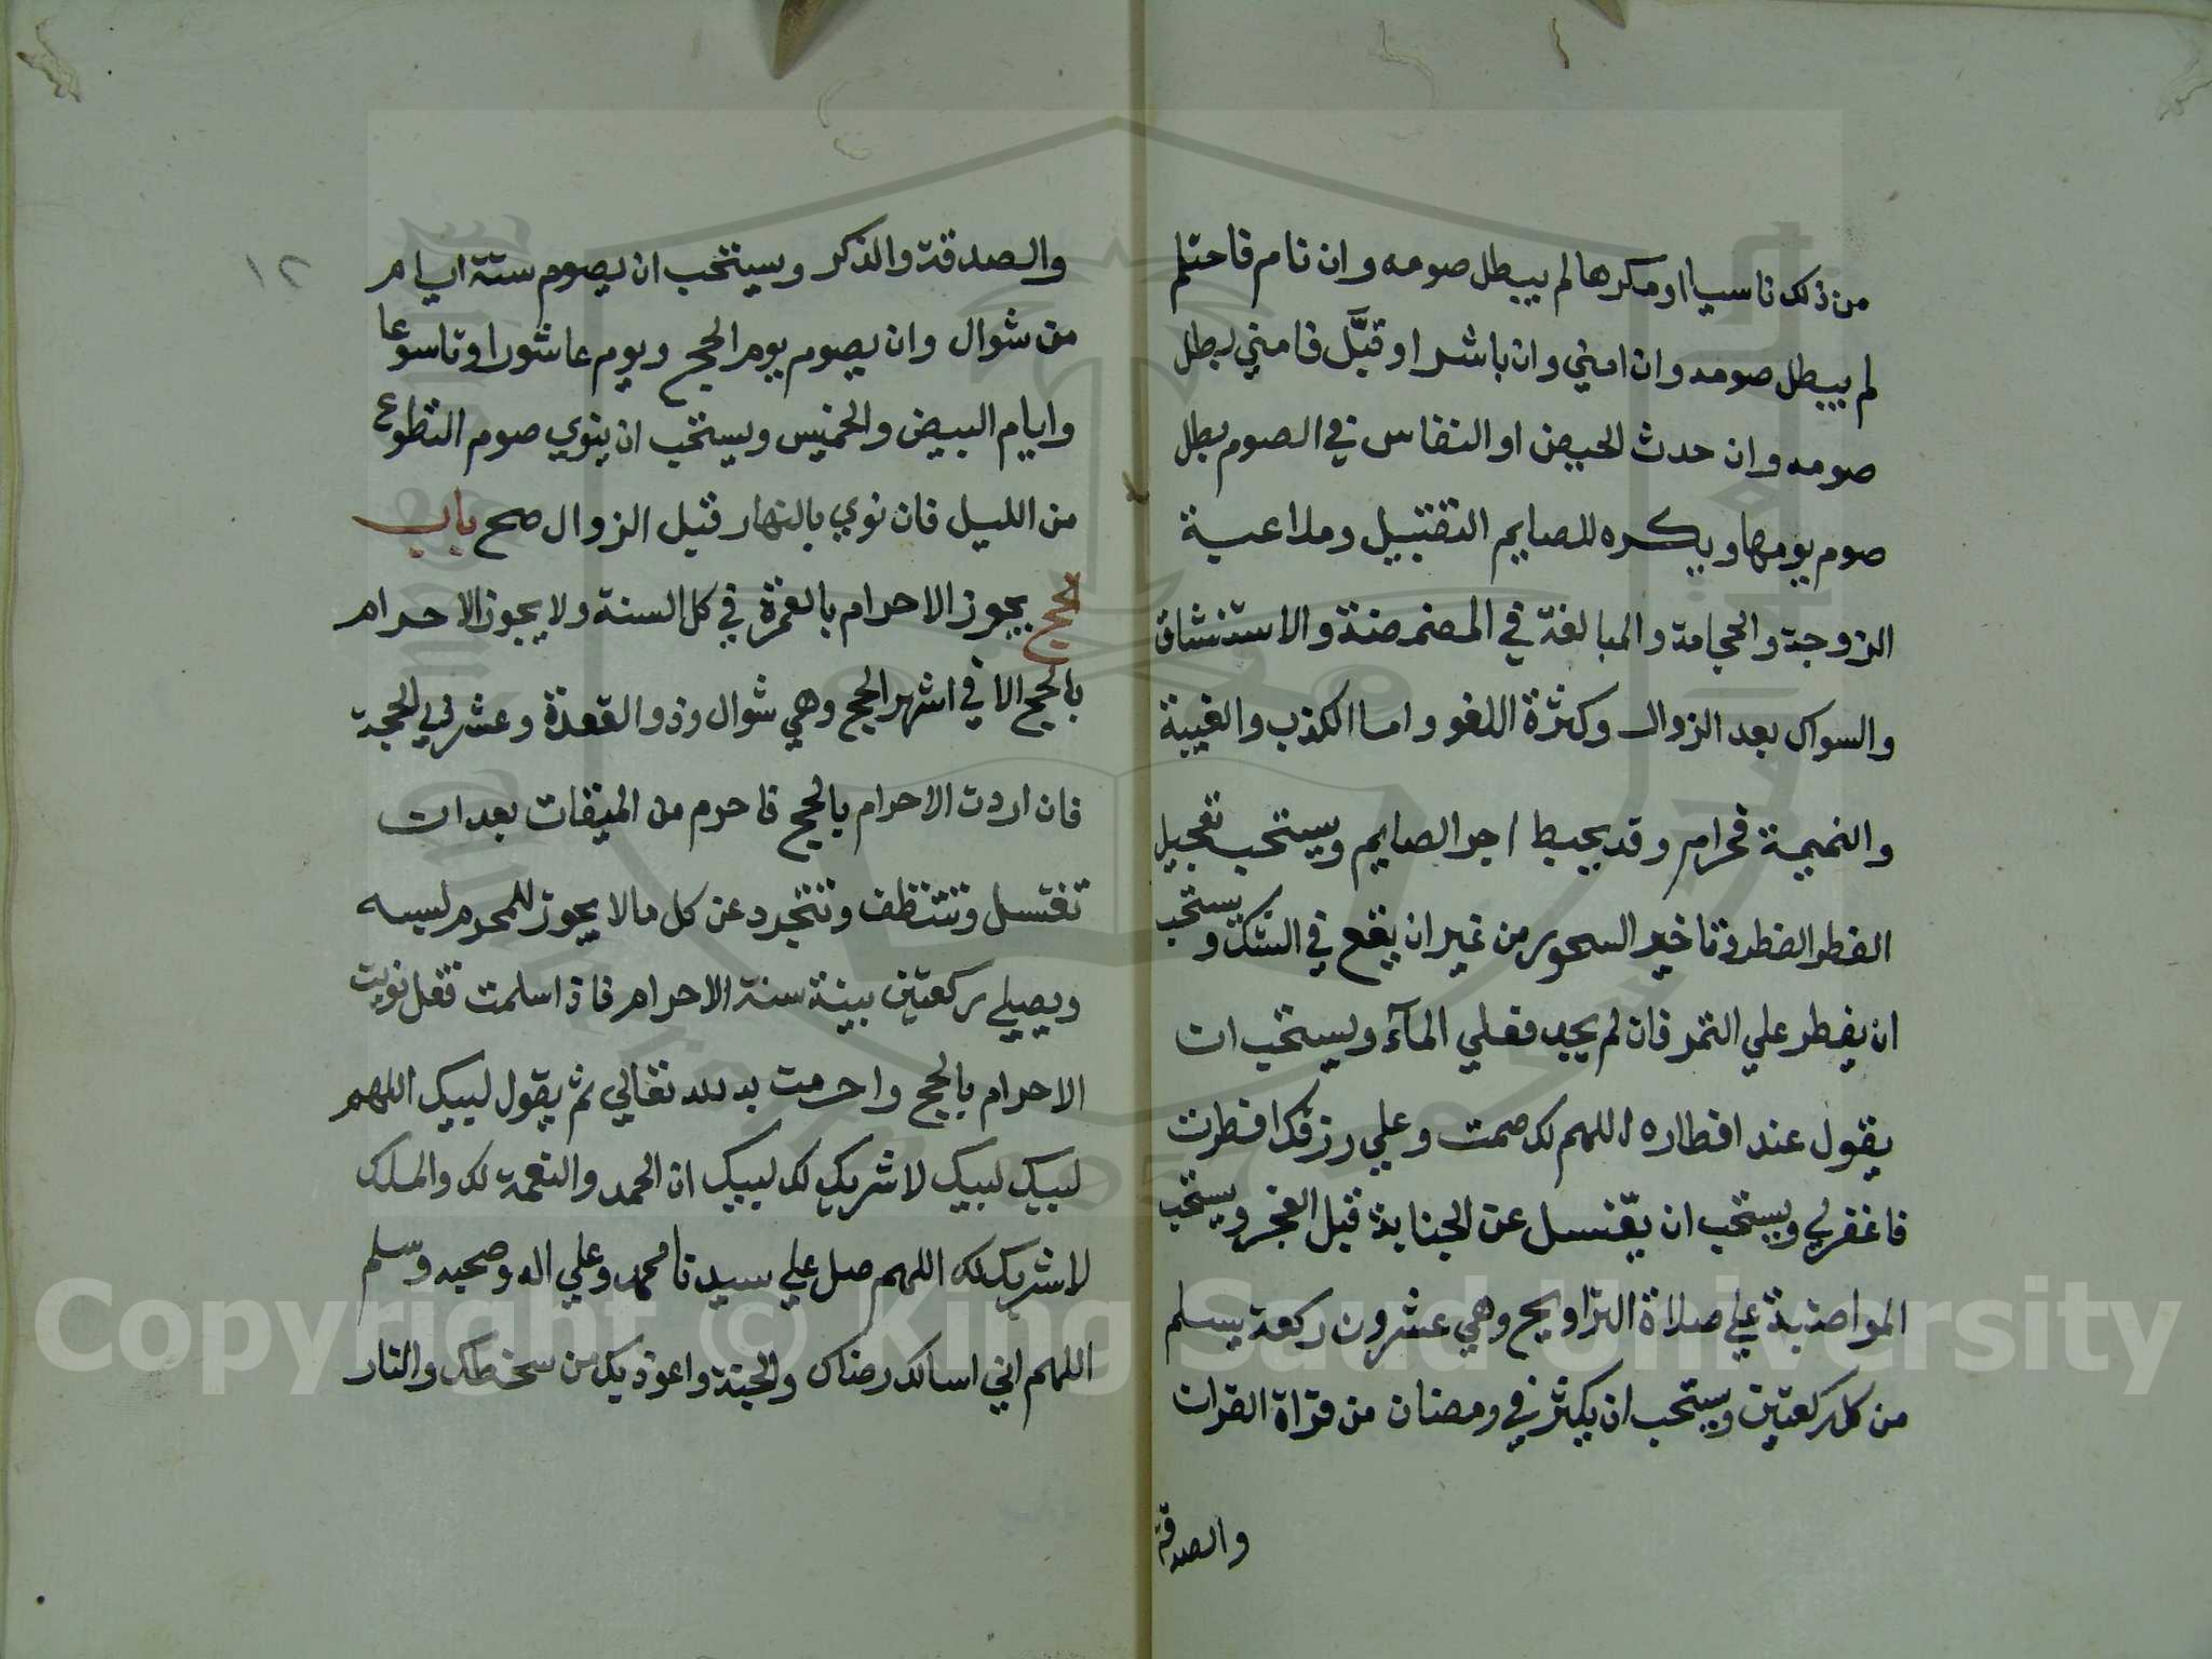 من ذلك ناسيا او مكرها لم يبطل صومه وان نام فاحتلم
لم يبطل صومه وان امني وان باشر او قبَّل فامني بطل
صومه وان حدث الحيض او النفاس في الصوم بطل
صوم يومها ويكره للصايم التقبيل وملاعبة
الزوجة والحجامة والمبالغة في المضمضة والاستنشاق
والسواك بعد الزوال وكثرة اللغو واما الكذب والغيبة
والنميمة فحرام وقد يحبط اجر الصايم ويستحب تعجيل
الفطر الفطر وتاخير السحور من غير ان يقع في الشك ويستحب
ان يفطر علي التمر فان لم يجد فعلي المآء ويستحب ان
يقول عند افطاره اللهم لك صمت وعلي رزقك افطرت
فاغفرلي ويستحب ان يغتسل عن الجنابة قبل الفجر ويستحب
المواضبة علي صلاة التراويح وهي عشرون ركعة يسلم
من كل ركعتين ويستحب ان يكثر في رمضان من قراة القران
والصدقة
١٢
والصدقة والذكر ويستحب ان يصوم ستة ايام
من شوال وان يصوم يوم الحج ويوم عاشورا وتاسوعا
وايام البيض والخميس ويستحب ان ينوي صوم التطوع
من الليل فان نوي بالنهار قبل الزوال صح باب
الحج يجوز الاحرام بالعمرة في كل السنة ولا يجوز الاحرام
بالحج الا في اشهر الحج وهي شوال وذو القعدة وعشر ذي الحجة
فان اردت الاحرام بالحج فاحرم من الميقات بعد ان
تغتسل وتتنظف وتتجرد عن كل مالا يجوز للمحرم لبسه
ويصلي ركعتين بينة سنة الاحرام فاذا سلمت فقل نويت
الاحرام بالحج واحرمت به لله تعالي ثم يقول لبيك اللهم
لبيك لبيك لا شريك لك لبيك ان الحمد والنعمة لك والملك
لا شريك لك اللهم صل علي سيدنا محمد وعلي اله وصحبه وسلم
اللهم اني اسالك رضاك والجنة واعوذ بك من سخطك والنار
Copyright © King Saud University